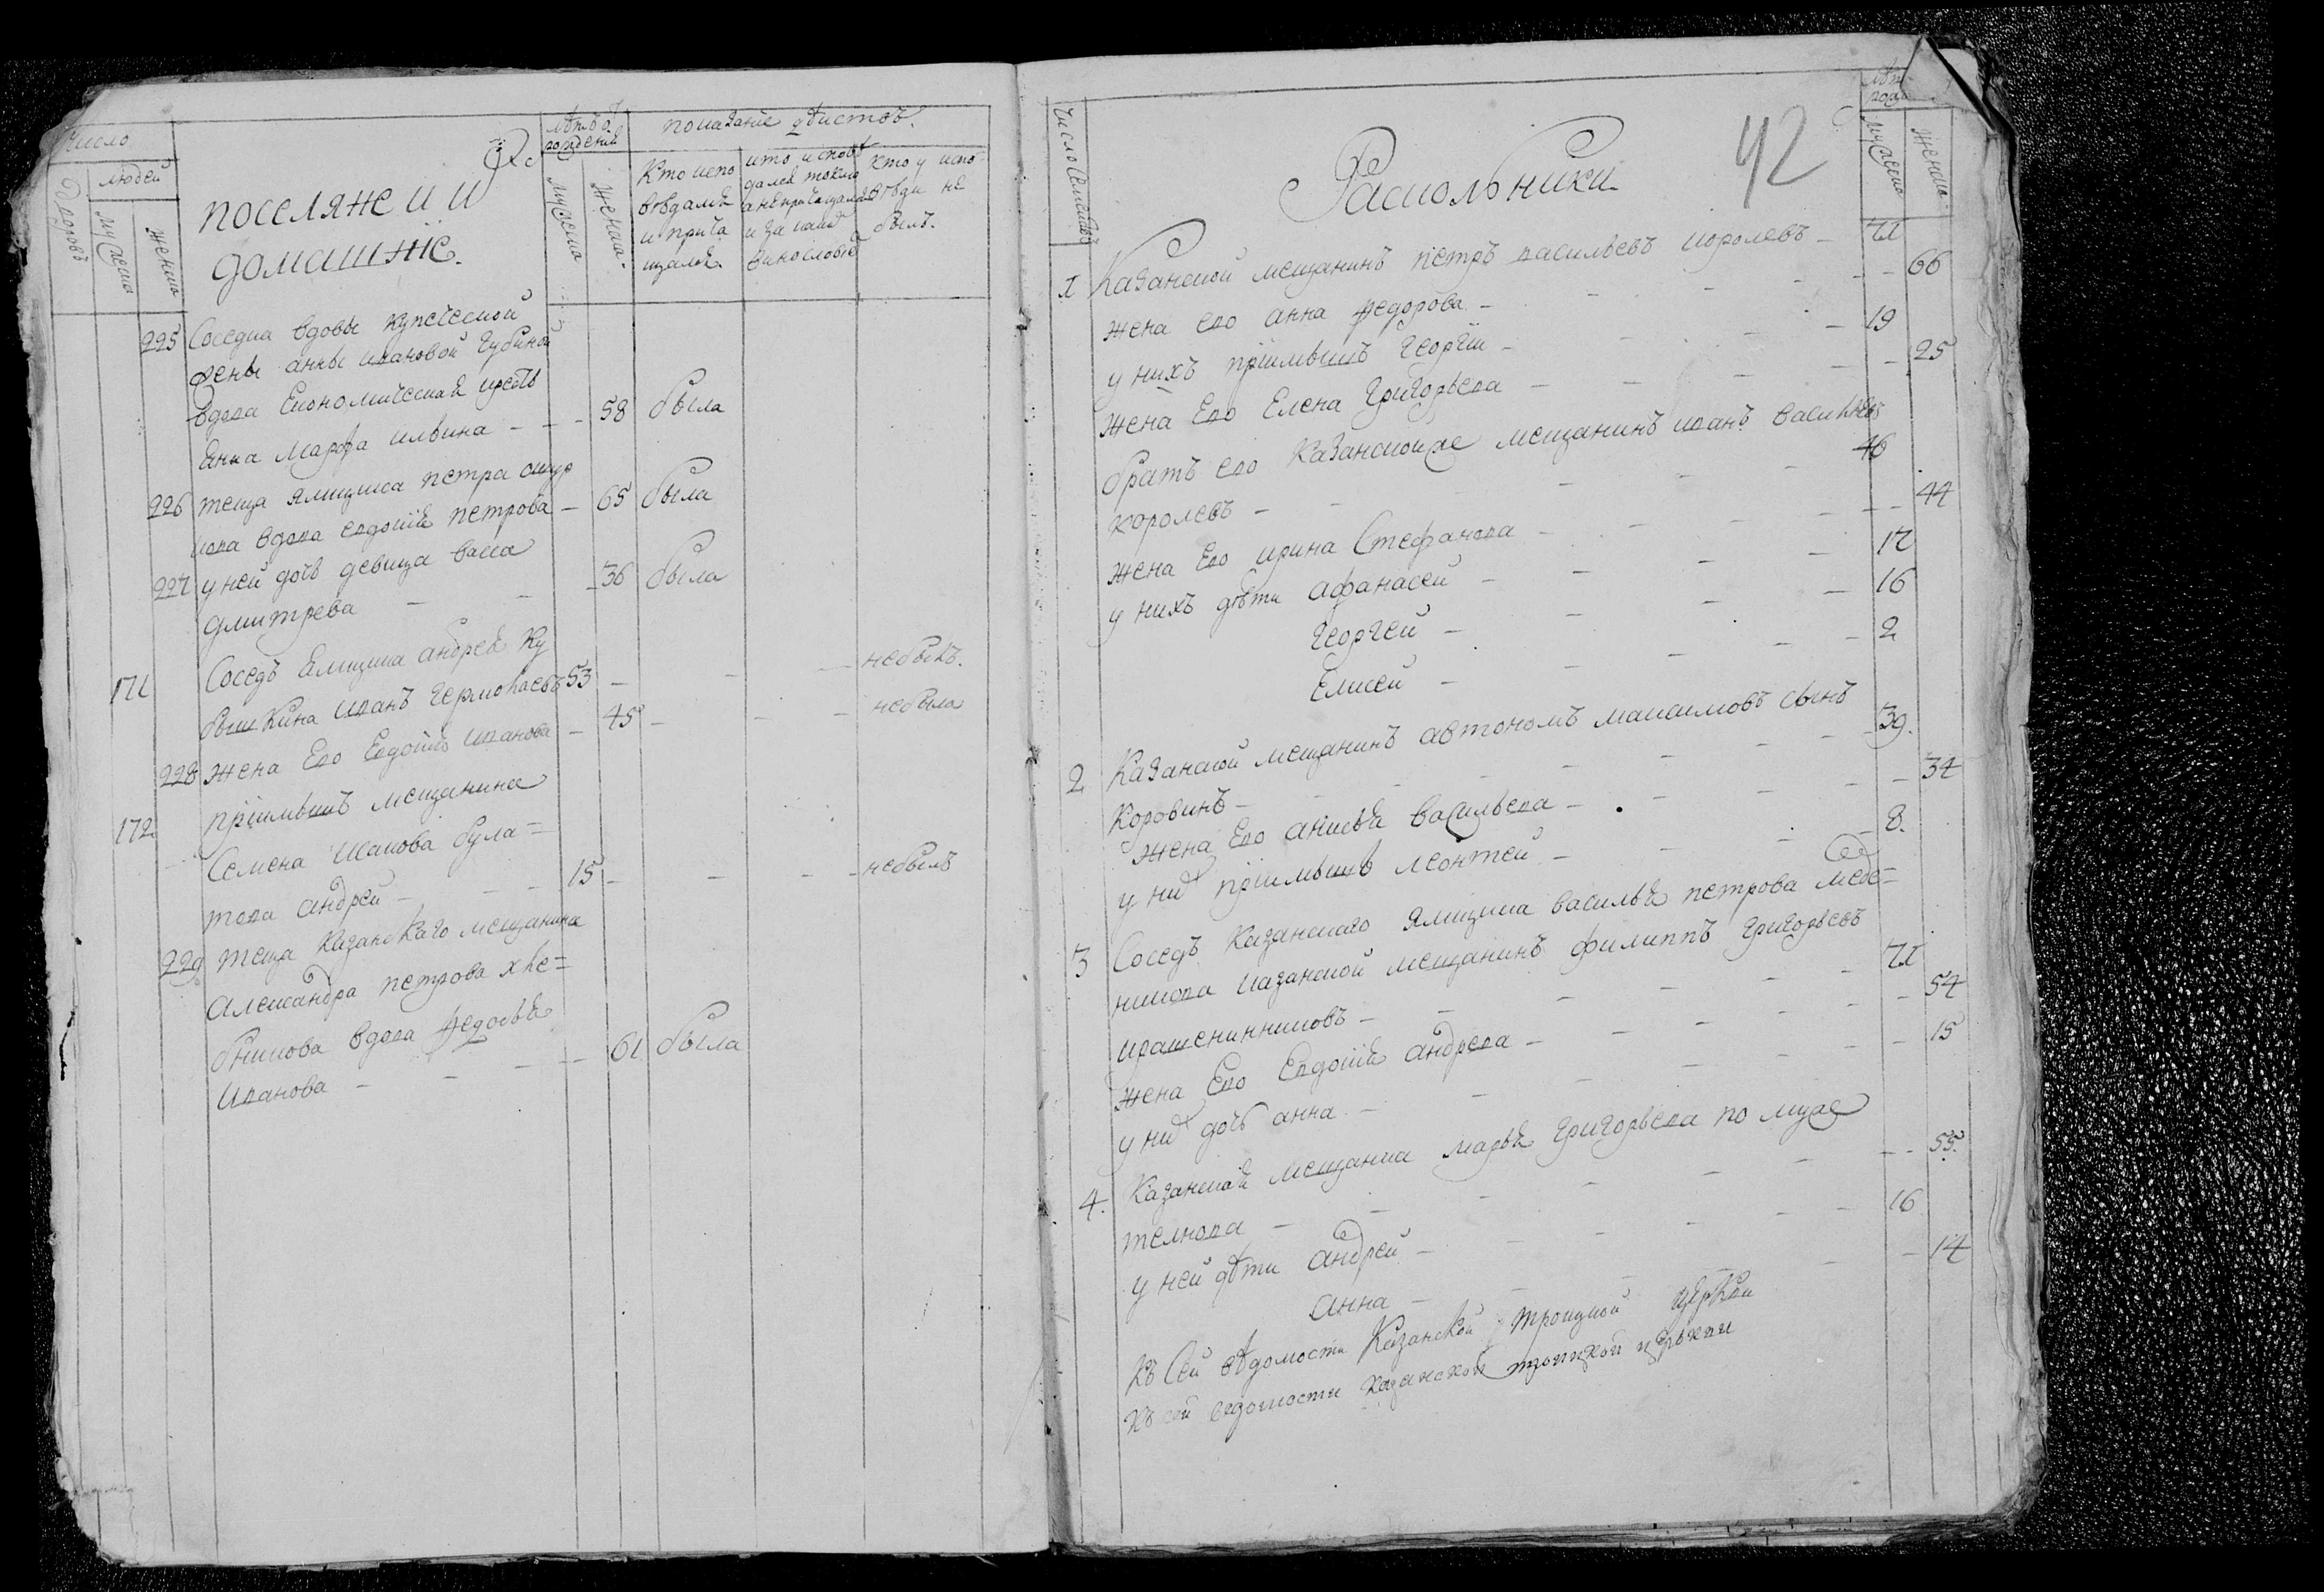 Число
людей
Дворовъ
мужеска
женска
поселяне и и
домашніе.
лѣтъ о
рожденія
мужеска
женска.
показаніе дѣйствъ.
Кто испо
вѣдался
и прича
щался.
кто исповѣ
дался токмо
а не причащался
и за какою
винословіею
кто у испо
вѣди не
былъ.
225 Соседка вдовы купеческой
жены анны ивановой Губиной
вдова Економическая кресть
янка Марфа ильина - - - 58 была
226 теща ямщика петра
вдова евдокія петрова - 65 была
227 у ней дочь девица васса
дмитрева - - - 36 была
171 Соседъ ямщика андрея Ку
бышкина иванъ Гермолаевъ 53 - - - небылъ.
228 жена Ево Евдокія иванова - 45 - - - небыла
172 пріимышъ мещанина
Семена Исакова була=
това андрей - - - 15 - - - небылъ
229 теща Казанскаго мещанина
Александра петрова хле=
бникова вдова федосья
Иванова - - - - 61 была
42
Раскольники
Число Семействъ
лѣт
рожд
мужеска
женска
1 Казанской мещанинъ петръ васильевъ королевъ - 71
жена ево анна федорова - - - - - 66
у нихъ пріимышъ Георгій - - - - 19
жена Ево Елена Григорьева - - - - 25
братъ ево Казанской же мещанинъ иванъ васильевъ
королевъ - - - - - 46
жена Ево ирина Стефанова - - - - 44
у нихъ дѣти афанасей - - - - 17
Георгей - - - - 16
Елисей - - - - 2
2 Казанской мещанинъ автономъ максимовъ сынъ
Коровинъ - - - - - 39.
жена Ево анисья васильева - - - - 34
у них пріимышъ леонтей - - - - 8.
3 Соседъ Казанскаго ямщика василья петрова медв=
никова казанской мещанинъ филиппъ Григорьевъ
крашенинниковъ - - - - - 71
жена Ево Евдокія андреева - - - - 54
у них дочь анна - - - - - 15
4. Казанская мещанка марья Григорьева по муже
телнова - - - - - 55.
у ней дѣти андрей - - - - 16
анна - - - - 14
Къ сей вѣдомости Казанской троицкой церкви
къ сей ведомости казанской троицкой церькви